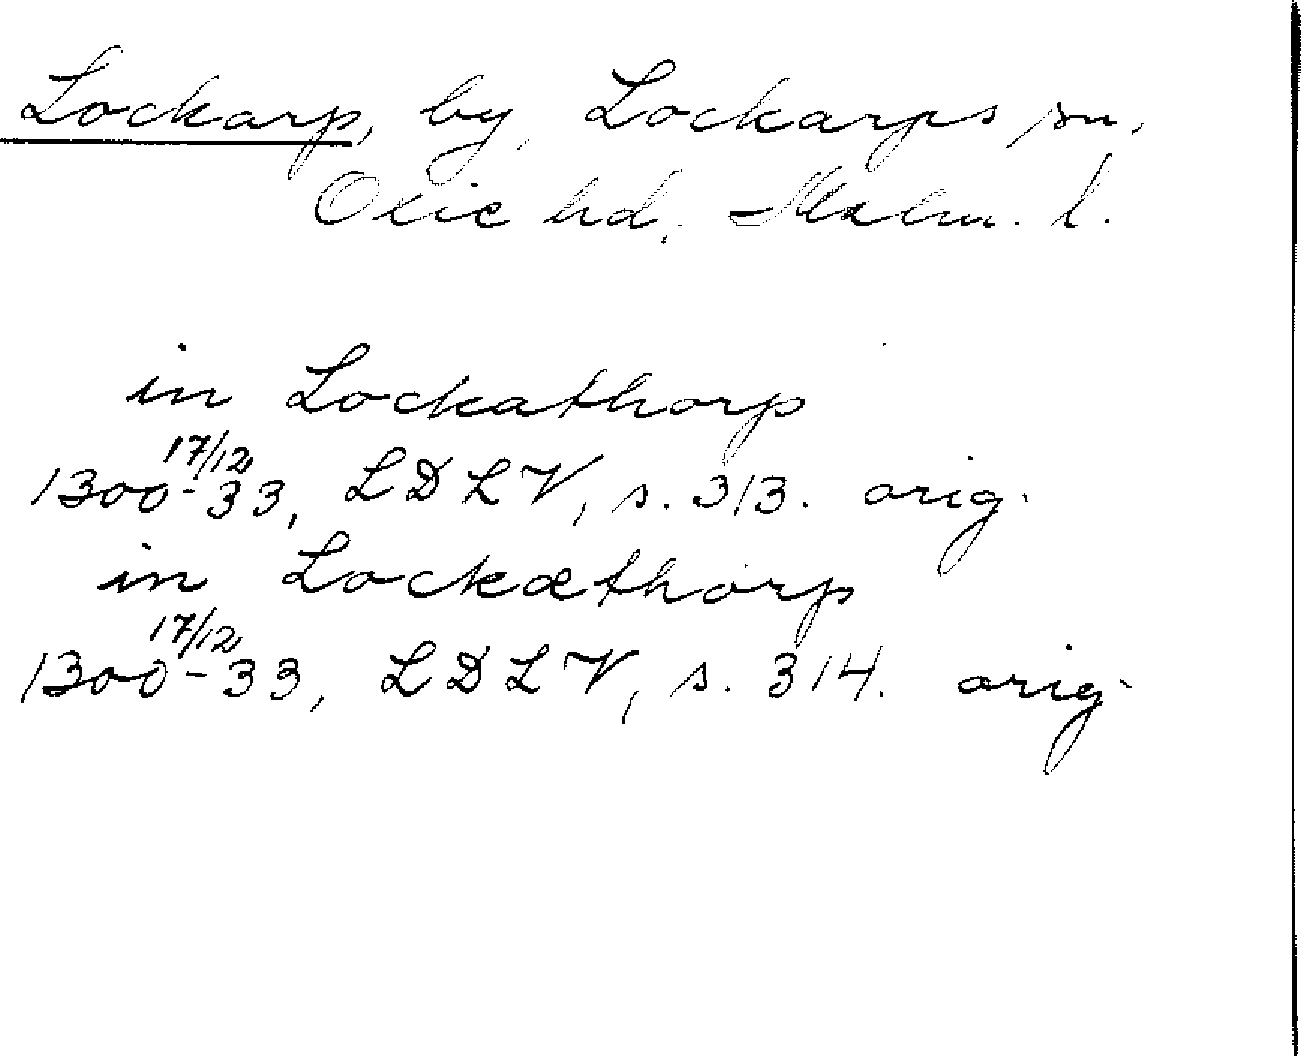 Lockarp, by, Lockarps sn,
Oxie hd, Malm. l.
in Lockathorp
17/12
1300-33, LDLV, s. 313. orig.
in Lockæthorp
17/12
1300-33, LDLV, s. 314. orig.